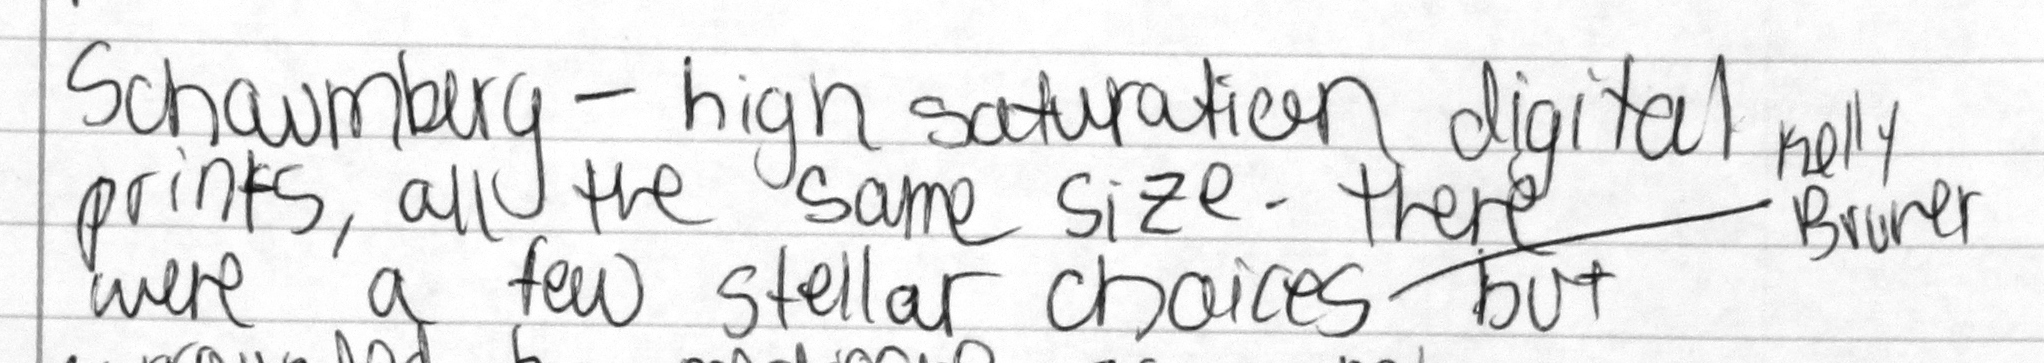 Schaumburg - high saturation digital
prints, all the same size. there
were a few stellar choices but
Kelly
Bruner